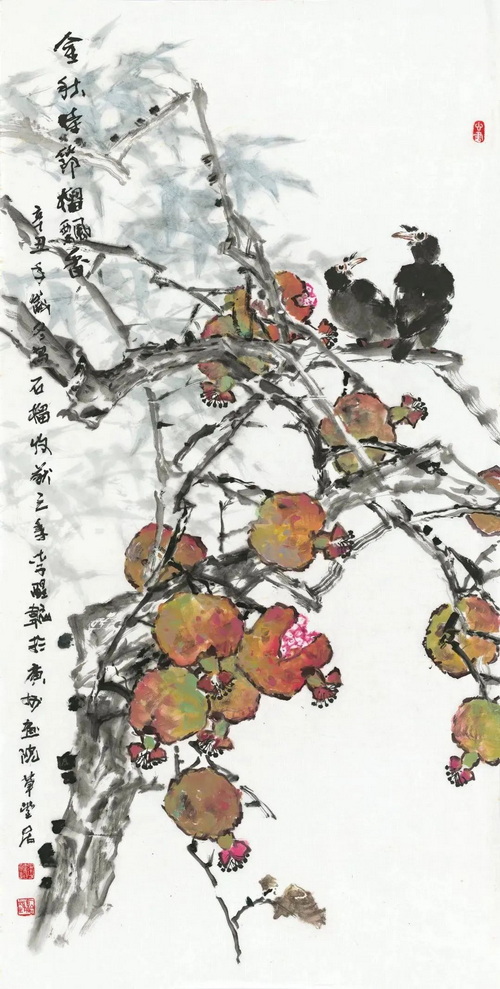 金秋時節榴飄香
辛丑年歲冬寫石榴收获之季李醒韜於廣州画院草堂居